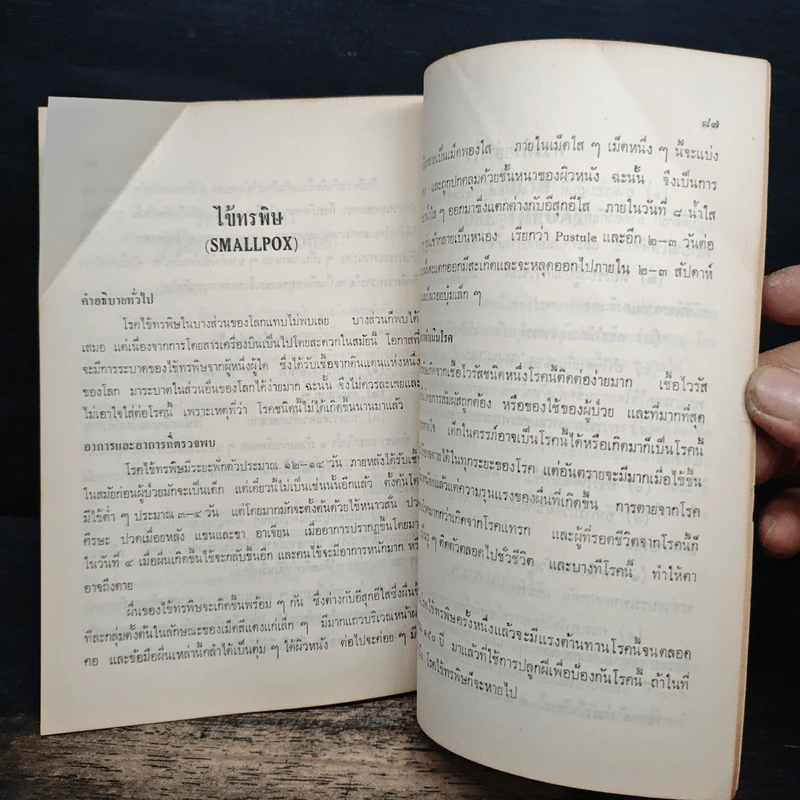 ไข้ทรพิษ
(SMALLPOX)
คำอธิบายทั่วไป
โรคไข้ทรพิษในบางส่วนของโลกแทบไม่พบเลย บางส่วนก็พบได้
เสมอ แต่เนื่องจากการโดยสารเครื่องบินเป็นไปโดยสะดวกในสมัยนี้ โอกาสที่
จะมีการระบาดของไข้ทรพิษจากผู้หนึ่งผู้ใด ซึ่งได้รับเชื้อจากดินแดนแห่งหนึ่ง
ของโลก มาระบาดในส่วนอื่นของโลกได้ง่ายมาก ฉะนั้น จึงไม่ควรละเลยและ
ไม่เอาใจใส่ต่อโรคนี้ เพราะเหตุที่ว่า โรคชนิดนี้ไม่ได้เกิดขึ้นนานมาแล้ว
อาการและอาการที่ตรวจพบ
โรคไข้ทรพิษมีระยะฟักตัวประมาณ ๑๒-๑๔ วัน ภายหลังได้รับเชื้อ
ในสมัยก่อนผู้ป่วยมักจะเป็นเด็ก แต่เดี๋ยวนี้ไม่เป็นเช่นนั้นอีกแล้ว ตั้งต้นโดย
มีไข้ต่ำ ๆ ประมาณ ๓-๔ วัน แต่โดยมากมักจะตั้งต้นด้วยไข้หนาวสั่น ปวด
ศีรษะ ปวดเมื่อยหลัง แขนและขา อาเจียน เมื่ออาการปรากฏขึ้นโดยมาก
ในวันที่ ๔ เมื่อผื่นเกิดขึ้นไข้จะกลับขึ้นอีก และคนไข้จะมีอาการหนักมาก
อาจถึงตาย
ผื่นของไข้ทรพิษจะเกิดขึ้นพร้อม ๆ กัน ซึ่งต่างกับอีสุกอีใสซึ่งผื่น
ทีละกลุ่มตั้งต้นในลักษณะของเม็ดสีแดงแก่เล็ก ๆ มีมากแถวบริเวณหน้า
คอ และข้อมือผื่นเหล่านี้คลำได้เป็นตุ่ม ๆ ใต้ผิวหนัง ต่อไปจะค่อย ๆ มี
๘๗
กลายเป็นเม็ดพองใส ภายในเม็ดใส ๆ เม็ดหนึ่ง ๆ นี้จะแบ่ง
และถูกปกคลุมด้วยชั้นหนาของผิวหนัง ฉะนั้น จึงเป็นการ
น้ำใส ๆ ออกมาซึ่งแตกต่างกับอีสุกอีใส ภายในวันที่ ๘ น้ำใส
ขุ่นเข้ากลายเป็นหนอง เรียกว่า Pustule และอีก ๒-๓ วันต่อ
จะแตกออกมีสะเก็ดและจะหลุดออกไปภายใน ๒-๓ สัปดาห์
รอยบุ๋มเล็ก ๆ
โรค
เกิดจากเชื้อไวรัสชนิดหนึ่งโรคนี้ติดต่อง่ายมาก เชื้อไวรัส
โดยการสัมผัสถูกต้อง หรือของใช้ของผู้ป่วย และที่มากที่สุด
หายใจ เด็กในครรภ์อาจเป็นโรคนี้ได้หรือเกิดมาก็เป็นโรคนี้
ตายได้ในทุกระยะของโรค แต่อันตรายจะมีมากเมื่อไข้ขึ้น
แล้วแต่ความรุนแรงของผื่นที่เกิดขึ้น การตายจากโรค
มากกว่าเกิดจากโรคแทรก และผู้ที่รอดชีวิตจากโรคนี้ก็
ๆ ติดตัวตลอดไปชั่วชีวิต และบางทีโรคนี้ ทำให้ตา
โรคไข้ทรพิษครั้งหนึ่งแล้วจะมีแรงต้านทานโรคนี้จนตลอด
๑๕๐ ปี มาแล้วที่ใช้การปลูกฝีเพื่อป้องกันโรคนี้ ถ้าในที่
โรคไข้ทรพิษก็จะหายไป